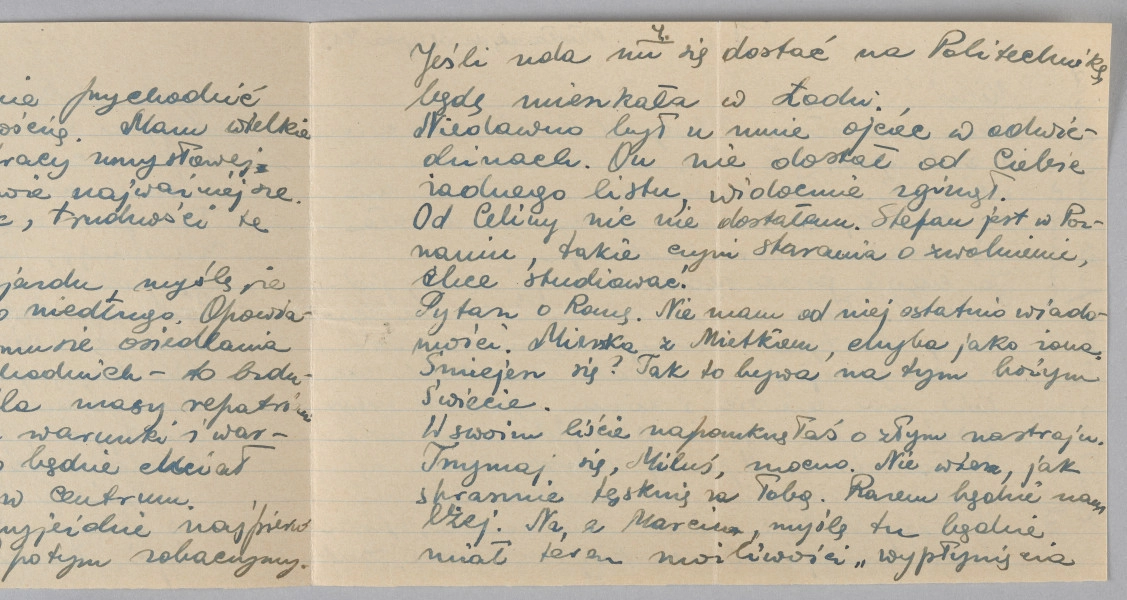 nia przychodzić
ością. Mam wielkie
racy umysłowej,
wie najważniejsze.
c, trudności te
jazdu, myślę, że
o niedługo. Opowia-
musie osiedlania
hodnich - to bzdu-
la masy repatrian
warunki i war-
o będzie chciał
w centrum.
yjeidzie najpierw
potym zobaczymy.
4.
Jeśli uda mi się dostać na Politechnikę
będę mieszkała w Łodzi.
Niedawno był u mnie ojciec w odwie-
dzinach. On nie dostał od Ciebie
żadnego listu, widocznie zginął.
Od Celiny nic nie dostałam. Stefan jest w Poz-
naniu, także czyni starania o zwolnienie,
chce studiować.
Pytasz o Romę. Nie mam od niej ostatnio wiado-
mości. Mieszka z Mietkiem, chyba jako żona.
Śmiejesz się? Tak to bywa na tym bożym
świecie.
W swoim liście napomknęłaś o złym nastroju.
Trzymaj się, Miluś, mocno. Nie wiesz, jak
strasznie tęsknię za Tobą. Razem będzie nam
lżej. No, a Marcin, myślę tu będzie
miał teren możliwości „wypłynięcia